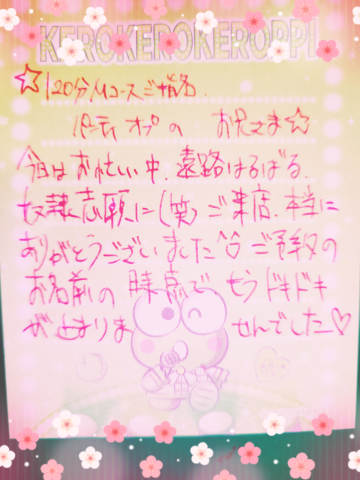 KEROKEROKEROPPI
☆120分Mコースご指名
パンティオブの お兄さま☆
今日はお忙しい中、遠路はるばる、
奴隷志願に(笑)ご来店、本当に
ありがとうございました^^ご予約の
お名前の時点でもうドキドキ
が止まりませんでした♡